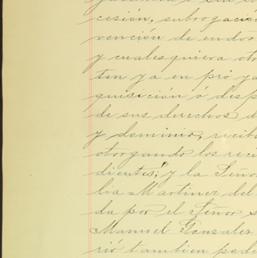 cesión, subrogació
vención de endos
y cualesquiera otro
ten ya en pró ya
quisición ó disp
de sus derechos d
y dominio, recib
otorgando los rec
dientes; y la Seño
lia Martinez del
da por el Señor
Manuel Gonzalez
rió tambien pode